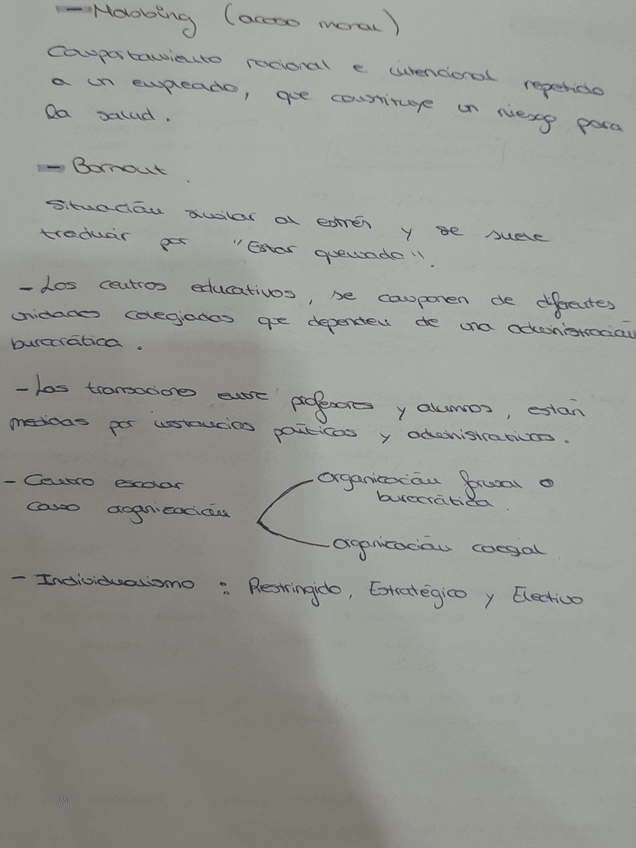 - Mobbing (acoso moral)
Comportamiento racional e intencional repetido
a un empleado, que constituye un riesgo para
la salud.
- Bornout.
Situación similar al estrés y se suele
traducir por "Estar quemado".
- Los centros educativos, se componen de diferentes
unidades colegiadas que dependen de una administración
burocrática.
- Las transaciones entre profesores y alumnos, están
medidas por instancias políticas y administrativas.
- Centro escolar
como organización
organización formal o
burocrática.
organización colegial
- Individualismo : Restringido, Estratégico y Electivo